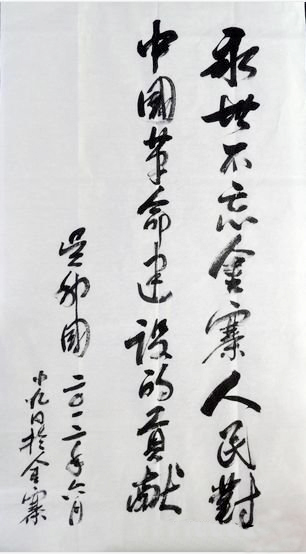 永世不忘金寨人民對
中國革命建設的貢献
吴邦國 二〇一二年六月
十九日於金寨